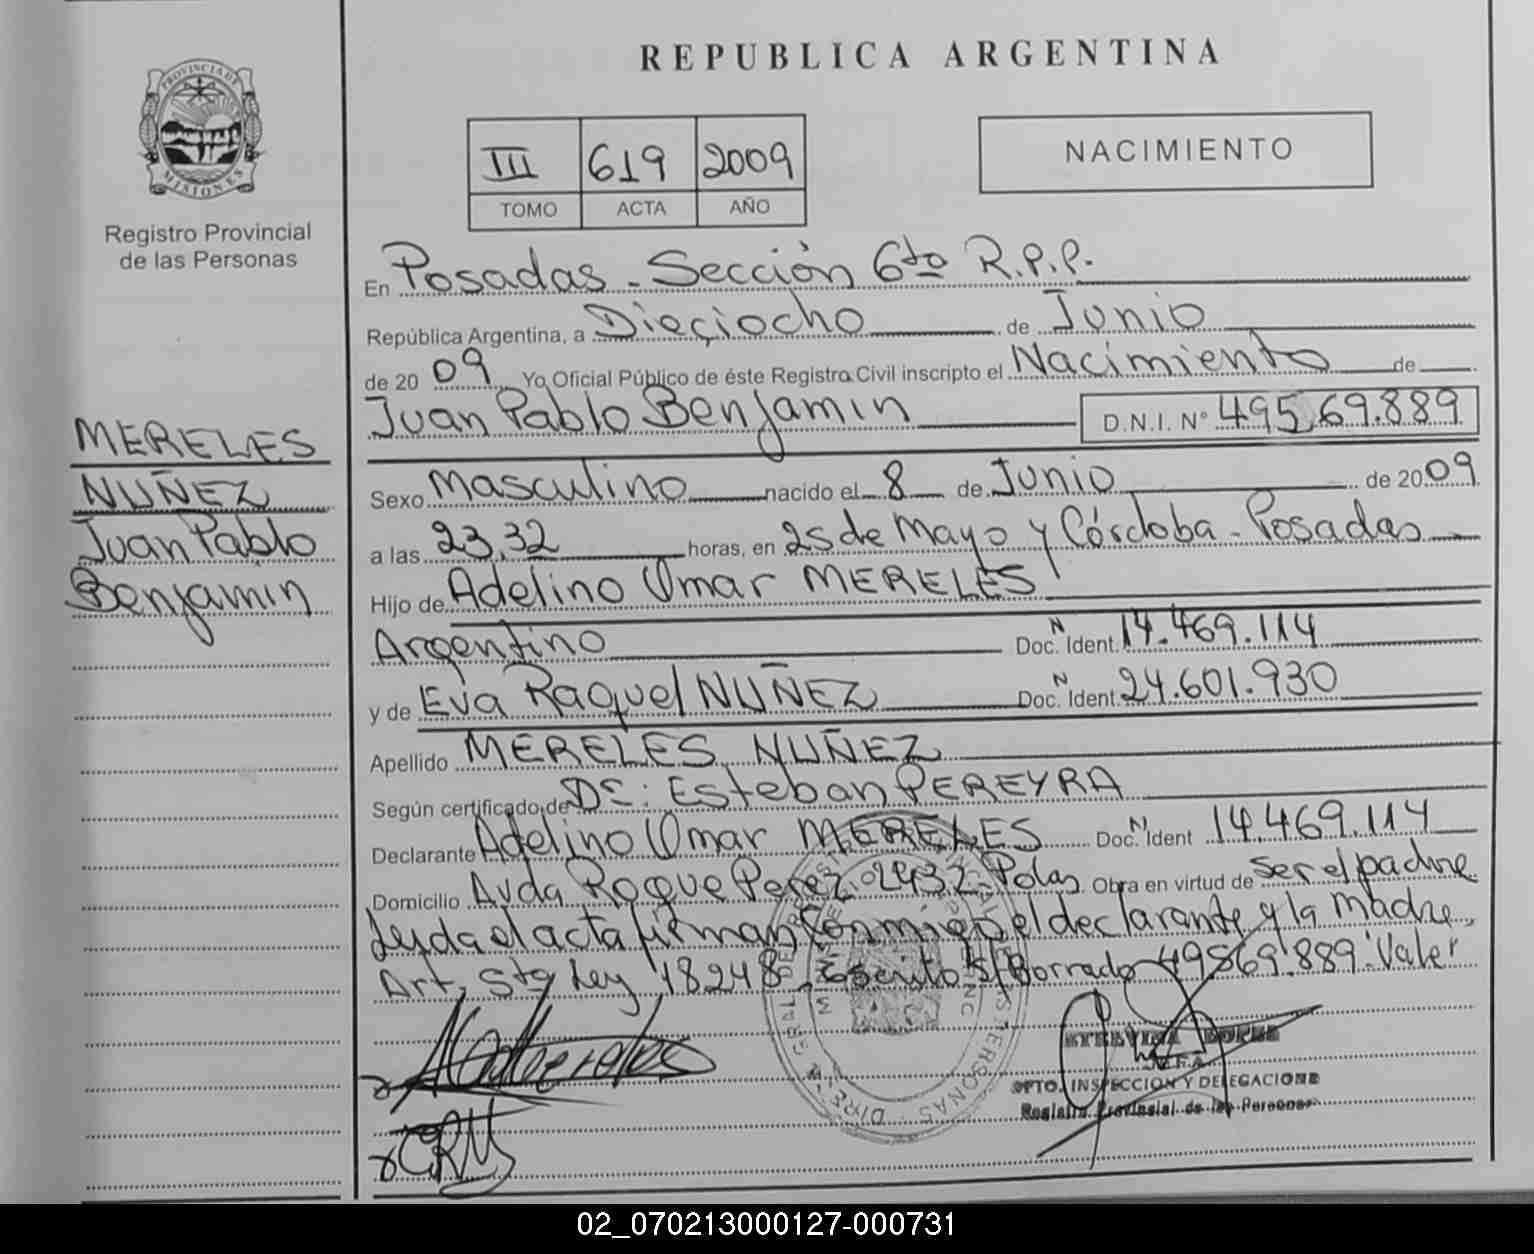 PROVINCIA DE
MISIONES
Registro Provincial
de las Personas
MERELES
NUÑEZ
Juan Pablo
Benjamin
REPUBLICA ARGENTINA
III 619 2009
TOMO ACTA AÑO
NACIMIENTO
En Posadas - Sección 6to R.P.P.
República Argentina, a Dieciocho de Junio
de 2009 Yo Oficial Público de éste Registro Civil inscripto el Nacimiento de
Juan Pablo Benjamin D.N.I. N° 495,69.889
Sexo Masculino nacido el 8 de Junio de 2009
a las 23,32 horas, en 25 de Mayo y Córdoba - Posadas
Hijo de Adelino Omar MERELES
Argentino Doc. N Ident. 14.469.114
y de Eva Raquel NUÑEZ Doc. N Ident. 24.601.930
Apellido MERELES NUÑEZ
Según certificado de Dr: Esteban PEREYRA
Declarante Adelino Omar MERELES Doc. N Ident 14.469.114
Domicilio Avda Roque Perez 2432 - Pdas. Obra en virtud de ser el padre
Leyda el acta firman conmigo el declarante y la madre,
Art. 5to Ley 18248. Escrito s/Borrado 49569.889: Valer
DPTO. INSPECCION Y DELEGACIONES
Registro Provincial de las Personas
02_070213000127-000731